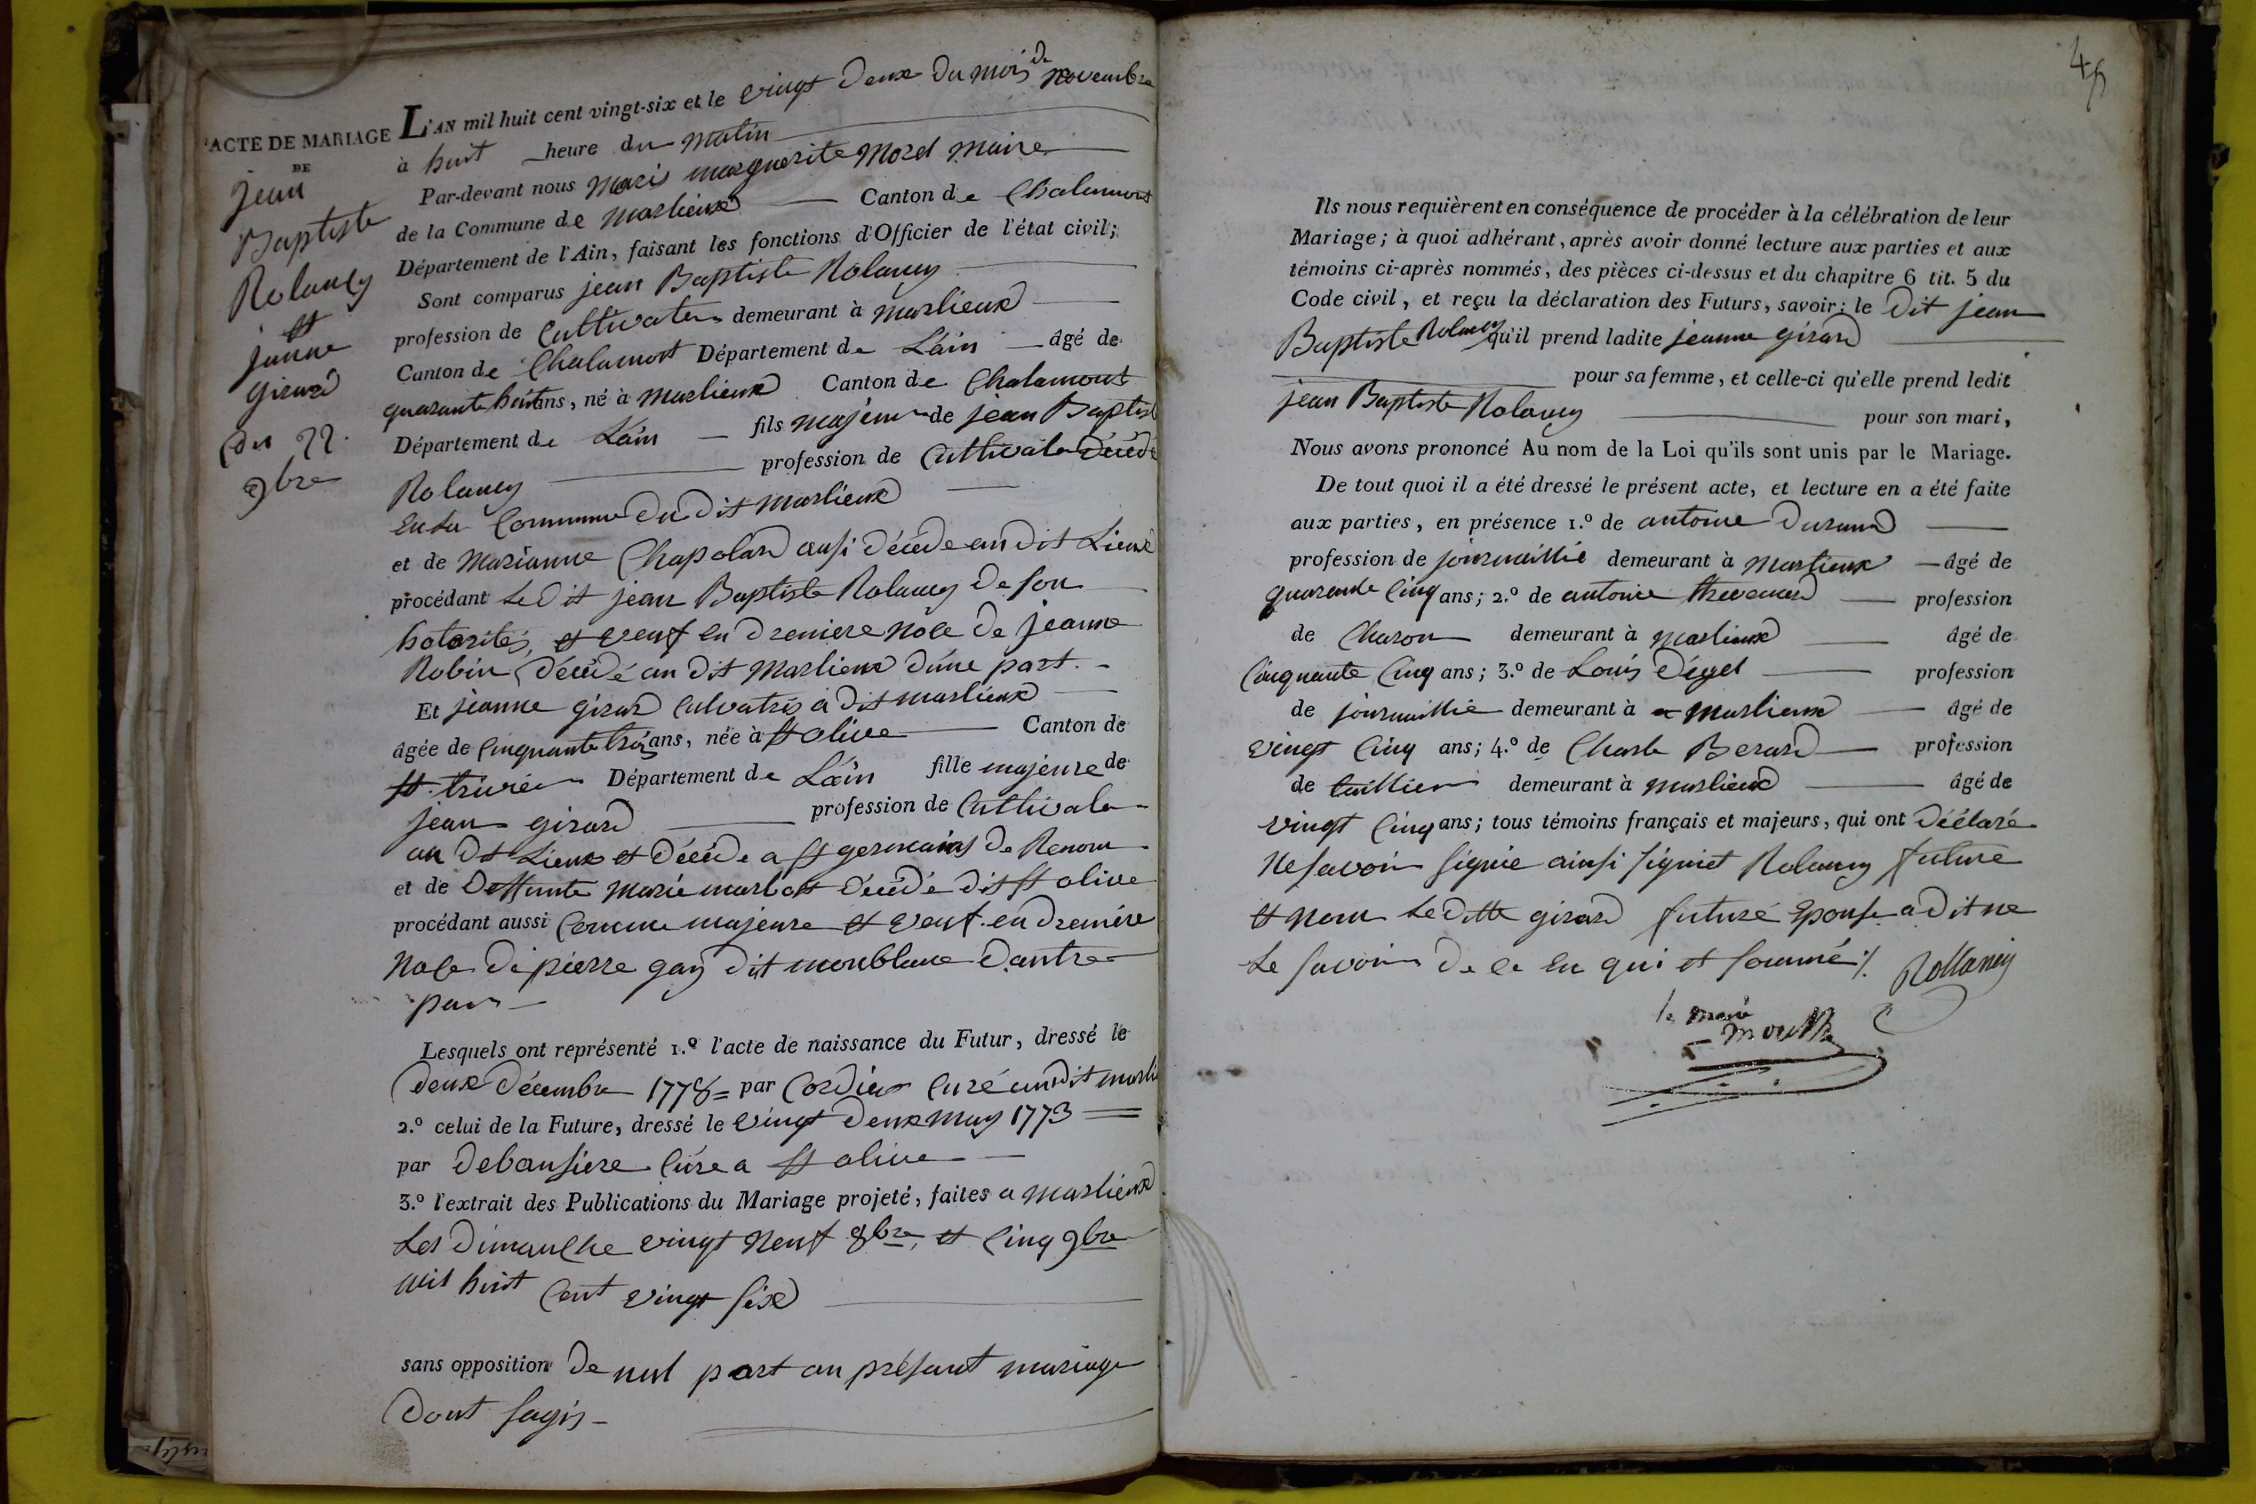 ACTE DE MARIAGE
DE
jean
Baptiste
Rolancy
et
jeanne
girard
du 22
9bre
L'AN mil huit cent vingt-six et le vingt deux du mois de novembre
à huit heure du matin
Par-devant nous marguerite Morel Maire
de la Commune de marlieux Canton de Chalamont
Département de l'Ain, faisant les fonctions d'Officier de l'état civil;
Sont comparus jean Baptiste Rolancy
profession de Cultivateur demeurant à marlieux
Canton de Chalamont Département de L'ain âgé de
quarante huit ans, né à marlieux Canton de Chalamont
Département de L'ain fils majeur de jean Baptist
Rolancy profession de Cultivateur décédé
en la Commune du dit marlieux
et de Marianne Chapolard ausi décédé au dit Lieux
procédant Le dit jean Baptiste Rolancy de son
hotorités, et veuf en dreniere noce de jeanne
Robin décédé au dit Marlieux d'une part.
Et jeanne girard a dit marlieux
âgée de cinquante trois ans, née à St olive Canton de
St. trivier Département de L'ain fille majeure de
jean girard profession de Cultivateur
au dit Lieux et décédé a St germains de Renom
et de Deffunte marie décédé dit St olive
procédant aussi Comme majeure et veuf en dreniére
Noce de pierre gay dit monblanc d'autre
part
Lesquels ont représenté 1.º l'acte de naissance du Futur, dressé le
deux décembre 1778 = par Cordier Curé au dit marli
2.º celui de la Future, dressé le vingt deux may 1773
par Debausiere Curé a St olive
3.º l'extrait des Publications du Mariage projeté, faites a marlieux
Les dimanche vingt neuf 8bre, et cinq 9bre
mil huit Cent vingt six
sans opposition de nul part au présant mariage
dont sagis
Ils nous requièrent en conséquence de procéder à la célébration de leur
Mariage; à quoi adhérant, après avoir donné lecture aux parties et aux
témoins ci-après nommés, des pièces ci-dessus et du chapitre 6 tit. 5 du
Code civil, et reçu la déclaration des Futurs, savoir: le dit jean
Baptiste Rolancy qu'il prend ladite jeanne girard
pour sa femme, et celle-ci qu'elle prend ledit
jean Baptiste Rolancy pour son mari,
Nous avons prononcé Au nom de la Loi qu'ils sont unis par le Mariage.
De tout quoi il a été dressé le présent acte, et lecture en a été faite
aux parties, en présence 1.º de antoine Durand
profession de journaillié demeurant à Marlieux âgé de
quarante cinq ans; 2.º de antoine thevenard profession
de Charon demeurant à marlieux âgé de
Cinquante Cinq ans; 3.º de Louis Déget profession
de journaillié demeurant à marlieux âgé de
vingt cinq ans; 4.º de Charle Berard profession
de taillier demeurant à marlieux âgé de
vingt Cinq ans; tous témoins français et majeurs, qui ont déclaré
ne savoir signié ainsi signiet Rolancy future
et nom Le ditte girard futuré épouse a dit ne
Le savoir de ce en qui et sommé ./. Rollancy
le maire